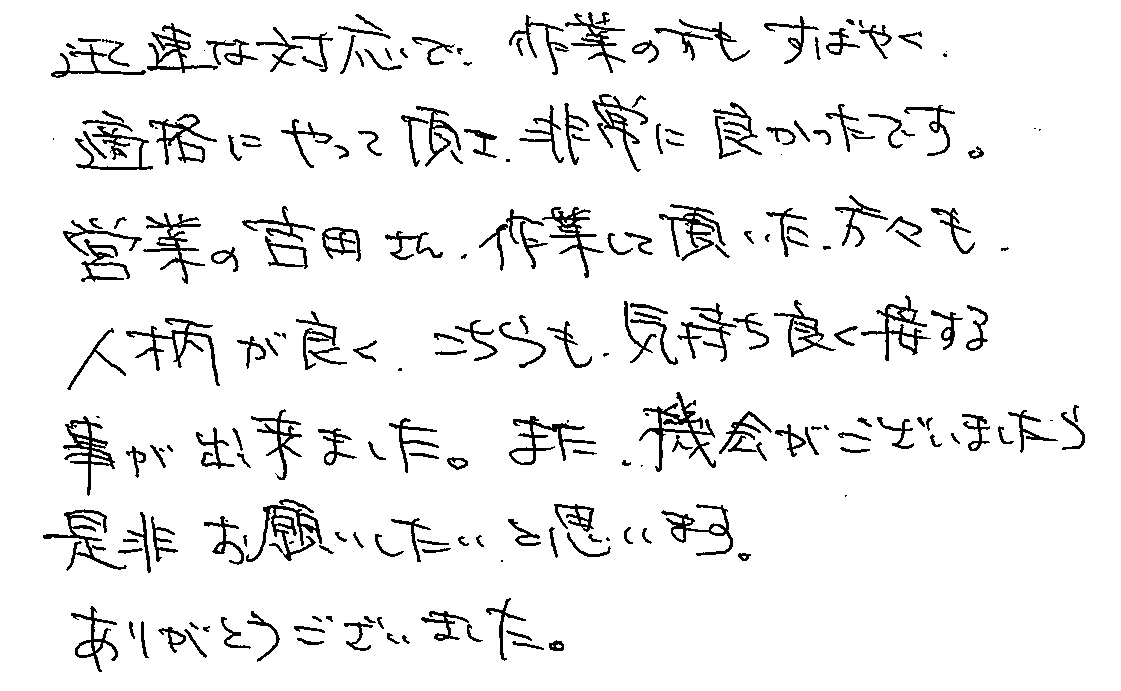 迅速な対応で、作業の方もすばやく、
適格にやって頂き、非常に良かったです。
営業の吉田さん、作業して頂いた、方々も、
人柄が良く、こちらも、気持ち良く接する
事が出来ました。また、機会がございましたら
是非お願いしたいと思います。
ありがとうございました。